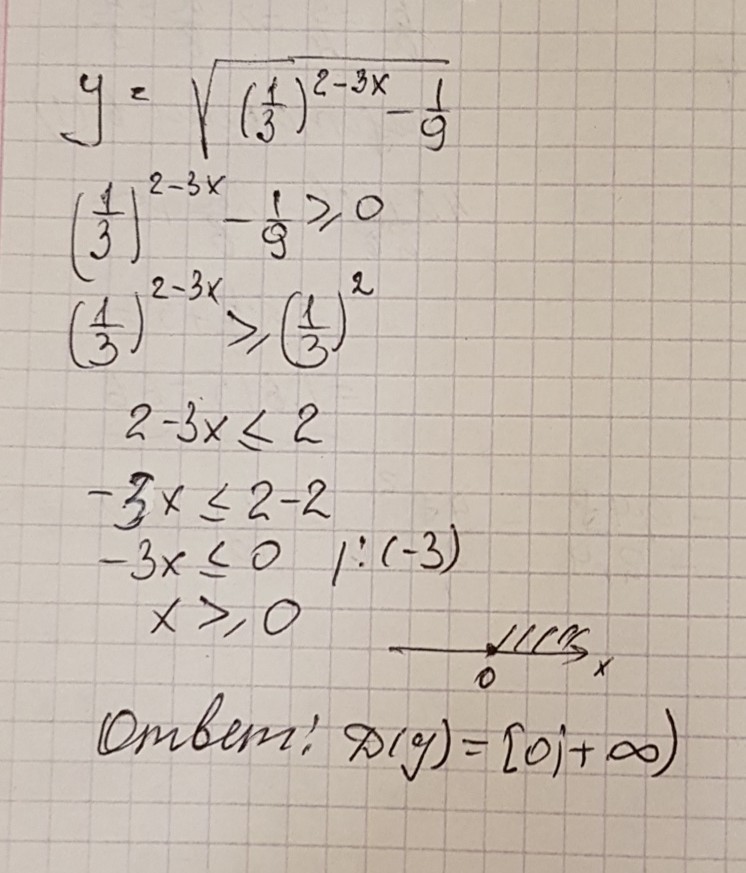 y = √((1/3)^(2-3x) - 1/9)
(1/3)^(2-3x) - 1/9 ≥ 0
(1/3)^(2-3x) ≥ (1/3)^2
2-3x ≤ 2
-3x ≤ 2-2
-3x ≤ 0 |:(-3)
x ≥ 0
0 x
Ответ: D(y) = [0;+∞)